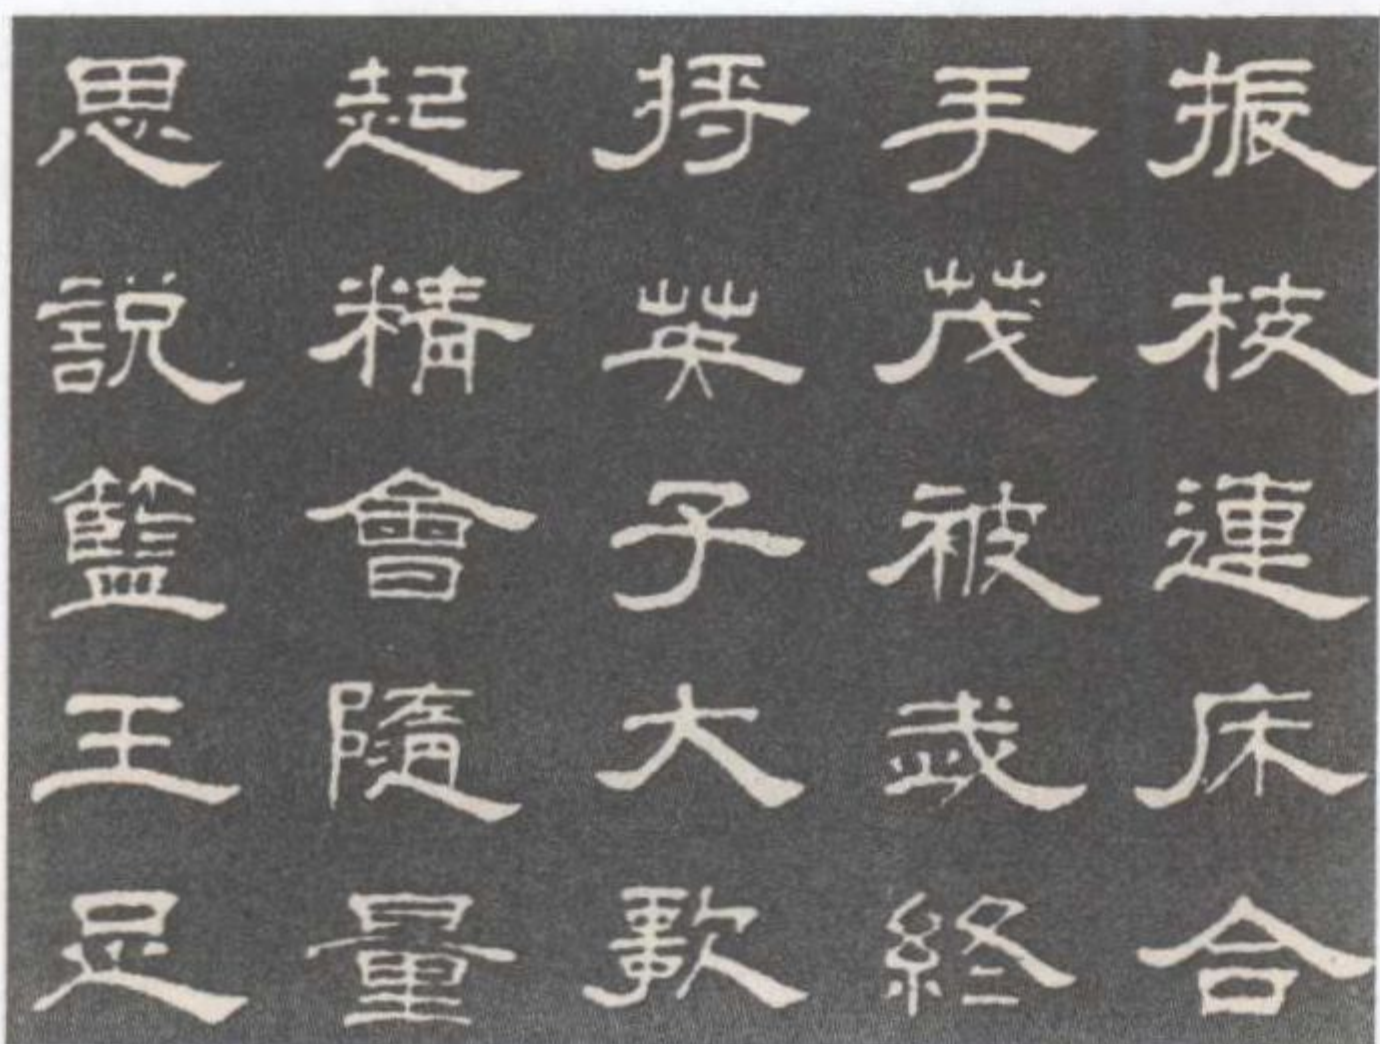 振枝連床合
手茂被武終
英子大
起精會隨量
思說籃王足